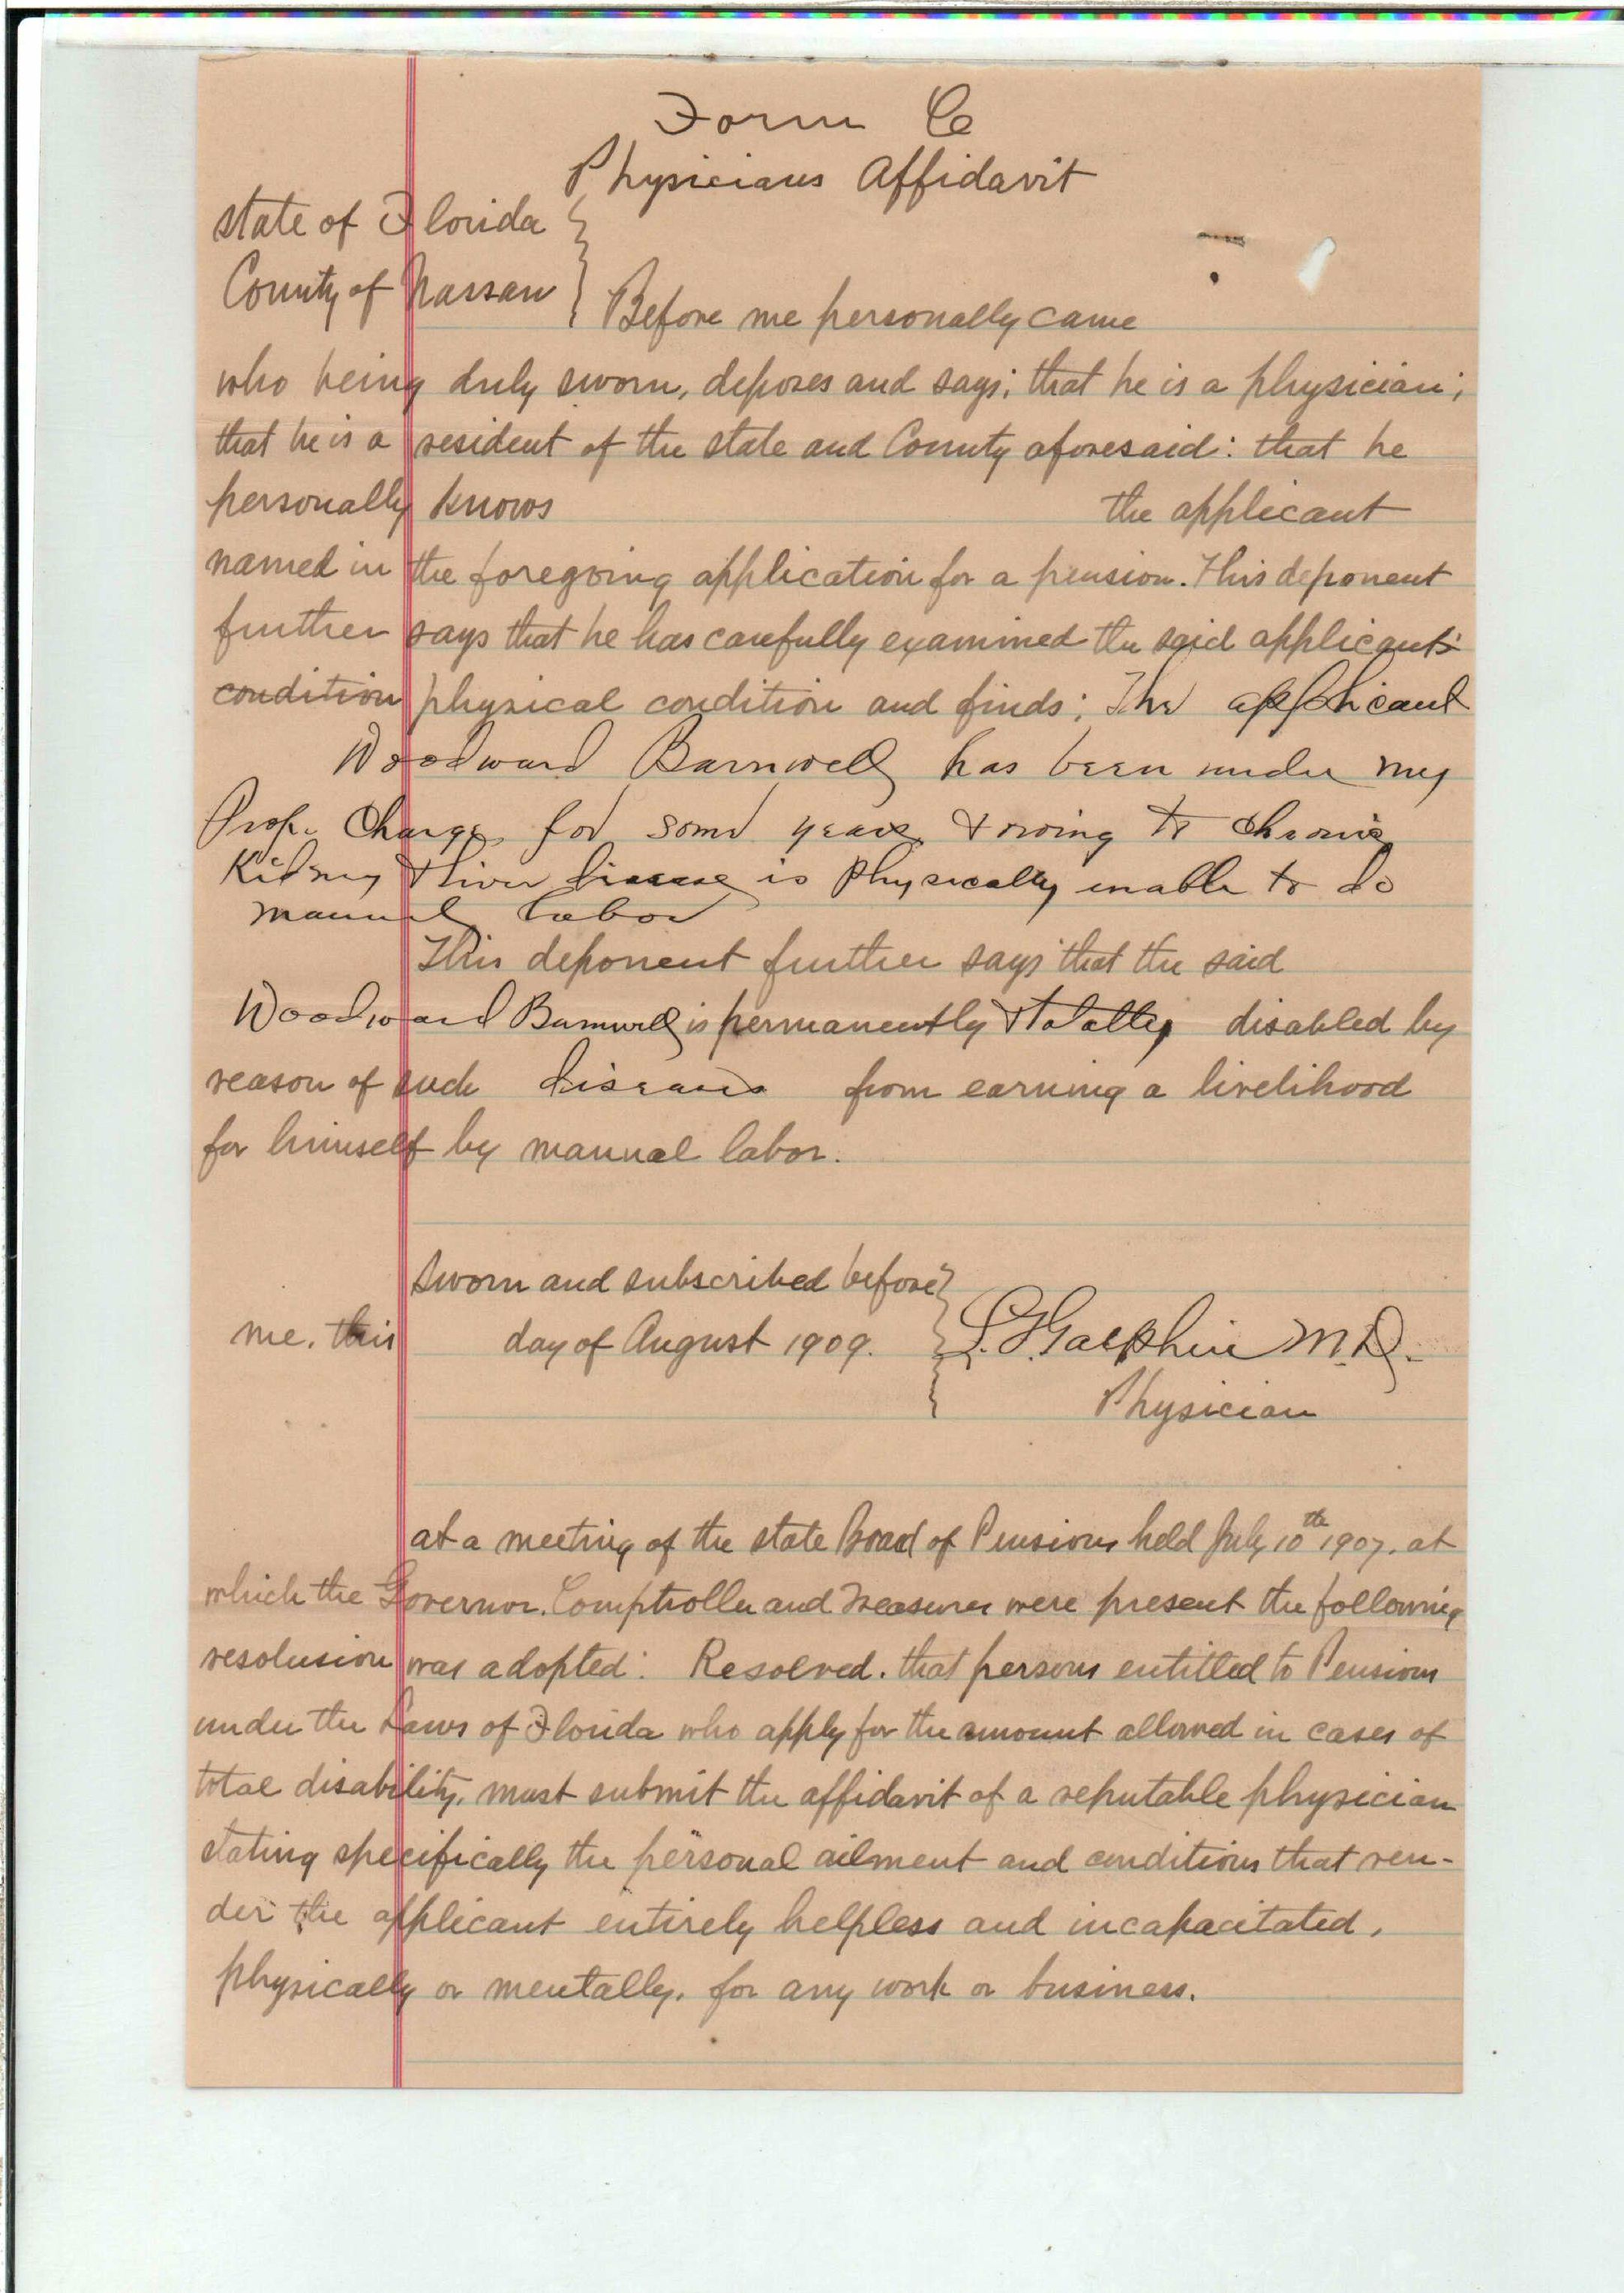 Form C
Physicians Affidavit
state of Florida
County of Nassau
Before me personally came
who being duly sworn, deposes and says; that he is a physician;
that he is a resident of the state and County aforesaid: that he
personally knows the applicant
named in the foregoing application for a pension. This deponent
further says that he has carefully examined the said applicants
condition physical condition and finds; The applicant
Woodward Barnwell has been under my
Prof. Charge for some years & owing to chronic
Kidney & liver disease is Physically unable to do
manual labor
This deponent further says that the said
Woodward Barnwell is permanently & totally disabled by
reason of such diseases from earning a livelihood
for himself by manual labor.
sworn and subscribed before
me, this day of August 1909. Galphin M.D.
Physician
at a meeting of the state Board of Pensions held July 10th 1907, at
which the Governor, Comptroller and Treasurer were present the following
resolusion was adopted: Resolved, that persons entitled to Pensions
under the Laws of Florida who apply for the amount allowed in cases of
total disability, must submit the affidavit of a reputable physician
stating specifically the personal ailment and conditions that ren-
der the applicant entirely helpless and incapacitated,
physically or mentally, for any work or business.